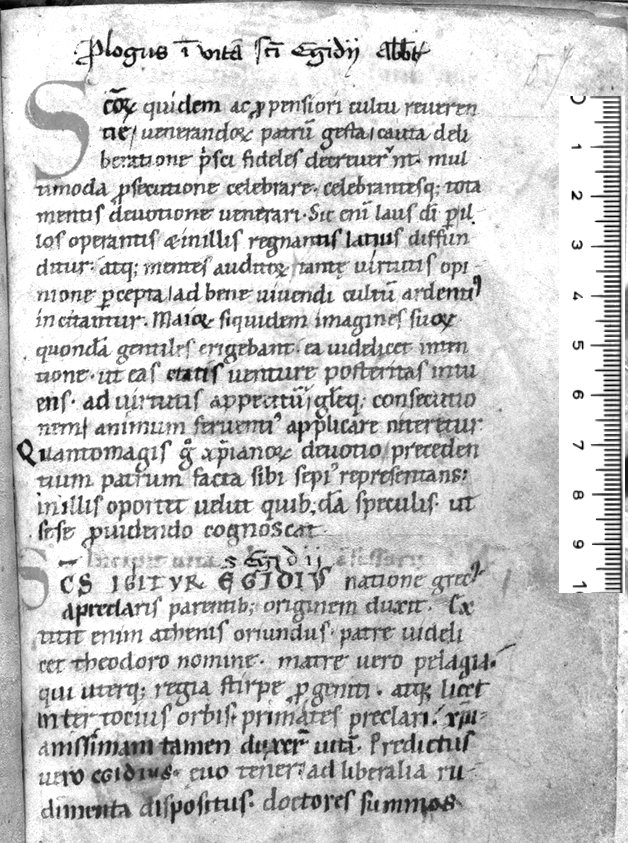 Plogus ī vitā sc̄i Egidij abb̄t
Scōꝝ quidem ac ꝓpensiori cultu reueren
tie/ uenerandoꝝ patrū gesta/ cauta deli
beratione p̄sci fideles decreuer̄nt· mul
timoda ꝓsecutione celebrare· celebrantesq; tota
mentis deuotione uenerari· Sic enī laus dī ꝑ il
los operantis & in illis regnantis latius diffun
ditur· atq; mentes auditoꝝ tantę uirtutis opi
nione ꝑcepta/ ad bene uiuendi cultū ardentiꝰ
incitantur. Maioꝝ siquidem imagines suoꝝ
quondā gentiles erigebant· ea uidelicet inten
tione· ut eas etatis uenture posteritas intu
ens· ad uirtutis appetitū/ glēq; consecutio
nem/ animum feruentiꝰ applicare niteretur
Quantomagis g̊ xp̄ianoꝝ deuotio/ preceden
tium patrum facta sibi sepiꝰ representans:
in illis oportet uelut quib;dā speculis· ut
sese ꝓuidendo cognoscat
s Egidij
SC̄S IGITVR EGIDIVS natione grecꝰ
a preclaris parentib; originem duxit. Ex
titit enim athenis oriundus· patre uideli
cet theodoro nomine· matre uero pelagia·
qui uterq; regia stirpe ꝓgeniti· atq; licet
inter tocius orbis primates preclari· xp̄ī
anissimam tamen duxer̄ uitā. Predictus
uero egidius· euo tener/ ad liberalia ru
dimenta dispositus· doctores summos
0
1
2
3
4
5
6
7
8
9